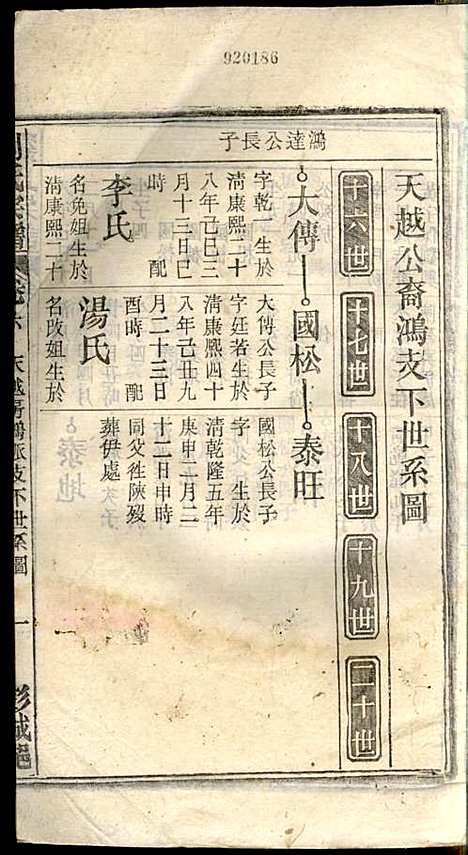 920186
天越公裔鴻支下世系圖
十六世
十七世
十八世
十九世
二十世
鴻達公長子
大傳
國松
泰旺
字乾一生於
清康熙二十
八年己巳三
月十三日巳
時 配
李氏
名免姐生於
清康熙二十
大傳公長子
字廷若生於
清康熙四十
八年己丑九
月二十三日
酉時 配
湯氏
名改姐生於
國松公長子
字 生於
清乾隆五年
庚申二月二
十二日申時
同父徃陝歿
葬伊處
劉氏宗譜
天越房鴻派支下世系圖
一
彭城